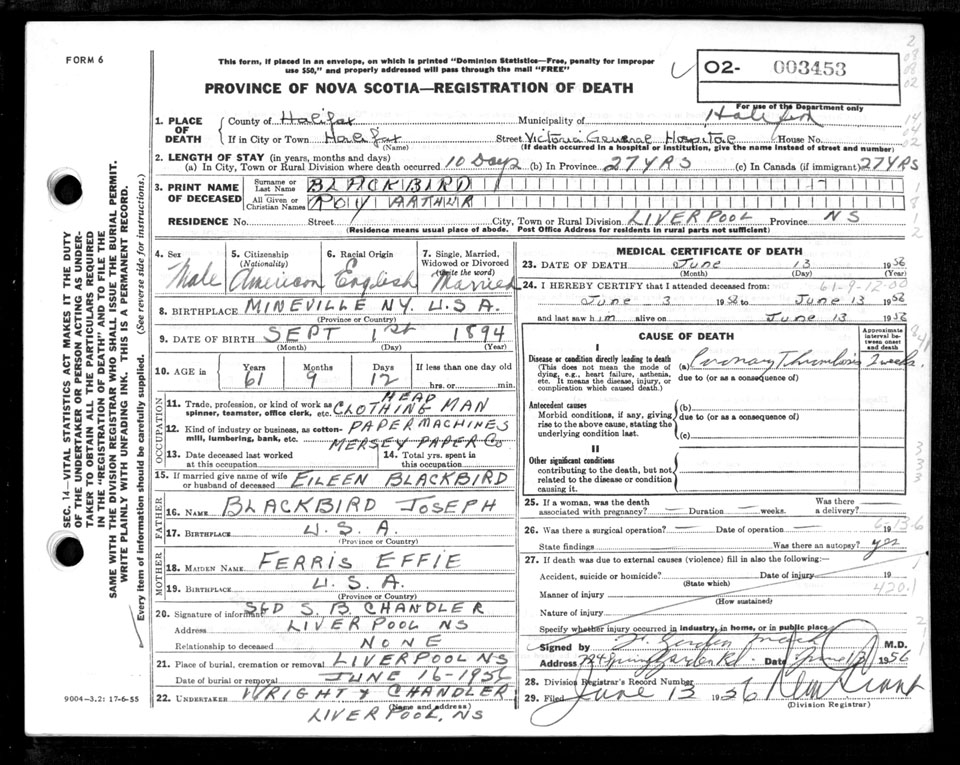 FORM 6
This form, if placed in an envelope, on which is printed "Dominion Statistics—Free, penalty for improper
use $50," and properly addressed will pass through the mail "FREE"
PROVINCE OF NOVA SCOTIA—REGISTRATION OF DEATH
02- 003453
For use of the Department only
1. PLACE OF DEATH
County of Halifax Municipality of Halifax
If in City or Town Halifax Street Victoria General Hospital House No.
(Name) (If death occurred in a hospital or institution, give the name instead of street and number)
2. LENGTH OF STAY (in years, months and days)
(a) In City, Town or Rural Division where death occurred 10 Days (b) In Province 27 YRS (c) In Canada (if immigrant) 27 YRS
3. PRINT NAME OF DECEASED
Surname or Last Name BLACKBIRD
All Given or Christian Names ROY ARTHUR
RESIDENCE No. Street City, Town or Rural Division LIVERPOOL Province NS
(Residence means usual place of abode. Post Office Address for residents in rural parts not sufficient)
4. Sex Male
5. Citizenship (Nationality) American
6. Racial Origin English
7. Single, Married, Widowed or Divorced (Write the word) Married
8. BIRTHPLACE MINEVILLE NY. U.S.A.
(Province or Country)
9. DATE OF BIRTH SEPT 1st 1894
(Month) (Day) (Year)
10. AGE in Years 61 Months 9 Days 12 If less than one day old
hrs. or min.
OCCUPATION
11. Trade, profession, or kind of work as spinner, teamster, office clerk, etc. HEAD CLOTHING MAN
12. Kind of industry or business, as cotton-mill, lumbering, bank, etc. PAPER MACHINES
MERSEY PAPER Co
13. Date deceased last worked at this occupation
14. Total yrs. spent in this occupation
15. If married give name of wife or husband of deceased EILEEN BLACKBIRD
FATHER
16. NAME BLACKBIRD JOSEPH
17. BIRTHPLACE U.S.A.
(Province or Country)
MOTHER
18. MAIDEN NAME FERRIS EFFIE
19. BIRTHPLACE U.S.A.
(Province or Country)
20. Signature of informant SGD S. B. CHANDLER
Address LIVERPOOL NS
Relationship to deceased NONE
21. Place of burial, cremation or removal LIVERPOOL NS
Date of burial or removal JUNE 16-1956
22. UNDERTAKER WRIGHT & CHANDLER
(Name and address)
LIVERPOOL, NS
9004-3.2: 17-6-55
MEDICAL CERTIFICATE OF DEATH
23. DATE OF DEATH June 13 1956
(Month) (Day) (Year)
61-9-12-00
24. I HEREBY CERTIFY that I attended deceased from:
June 3 1956 to June 13 1956
and last saw him alive on June 13 1956
CAUSE OF DEATH
Approximate interval between onset and death
I
Disease or condition directly leading to death
(This does not mean the mode of dying, e.g., heart failure, asthenia, etc. It means the disease, injury, or complication which caused death.)
(a) Coronary Thrombosis 2 weeks.
due to (or as a consequence of)
Antecedent causes
Morbid conditions, if any, giving rise to the above cause, stating the underlying condition last.
(b)
due to (or as a consequence of)
(c)
II
Other significant conditions
contributing to the death, but not related to the disease or condition causing it.
25. If a woman, was the death associated with pregnancy? — Duration — weeks. Was there a delivery? —
26. Was there a surgical operation? — Date of operation — 19
State findings Was there an autopsy? yes
27. If death was due to external causes (violence) fill in also the following:—
Accident, suicide or homicide? Date of injury 19
(State which)
420.1
Manner of injury
(How sustained)
Nature of injury
Specify whether injury occurred in industry, in home, or in public place
Signed by M.D.
Address Spring Garden Rd. Date June 13 1956
28. Division Registrar's Record Number
29. Filed June 13 1956
(Division Registrar)
SEC. 14—VITAL STATISTICS ACT MAKES IT THE DUTY
OF THE UNDERTAKER OR PERSON ACTING AS UNDER-
TAKER TO OBTAIN ALL THE PARTICULARS REQUIRED
IN THE "REGISTRATION OF DEATH" AND TO FILE THE
SAME WITH THE DIVISION REGISTRAR WHO SHALL ISSUE THE BURIAL PERMIT.
WRITE PLAINLY WITH UNFADING INK. THIS IS A PERMANENT RECORD.
Every item of information should be carefully supplied. (See reverse side for instructions.)